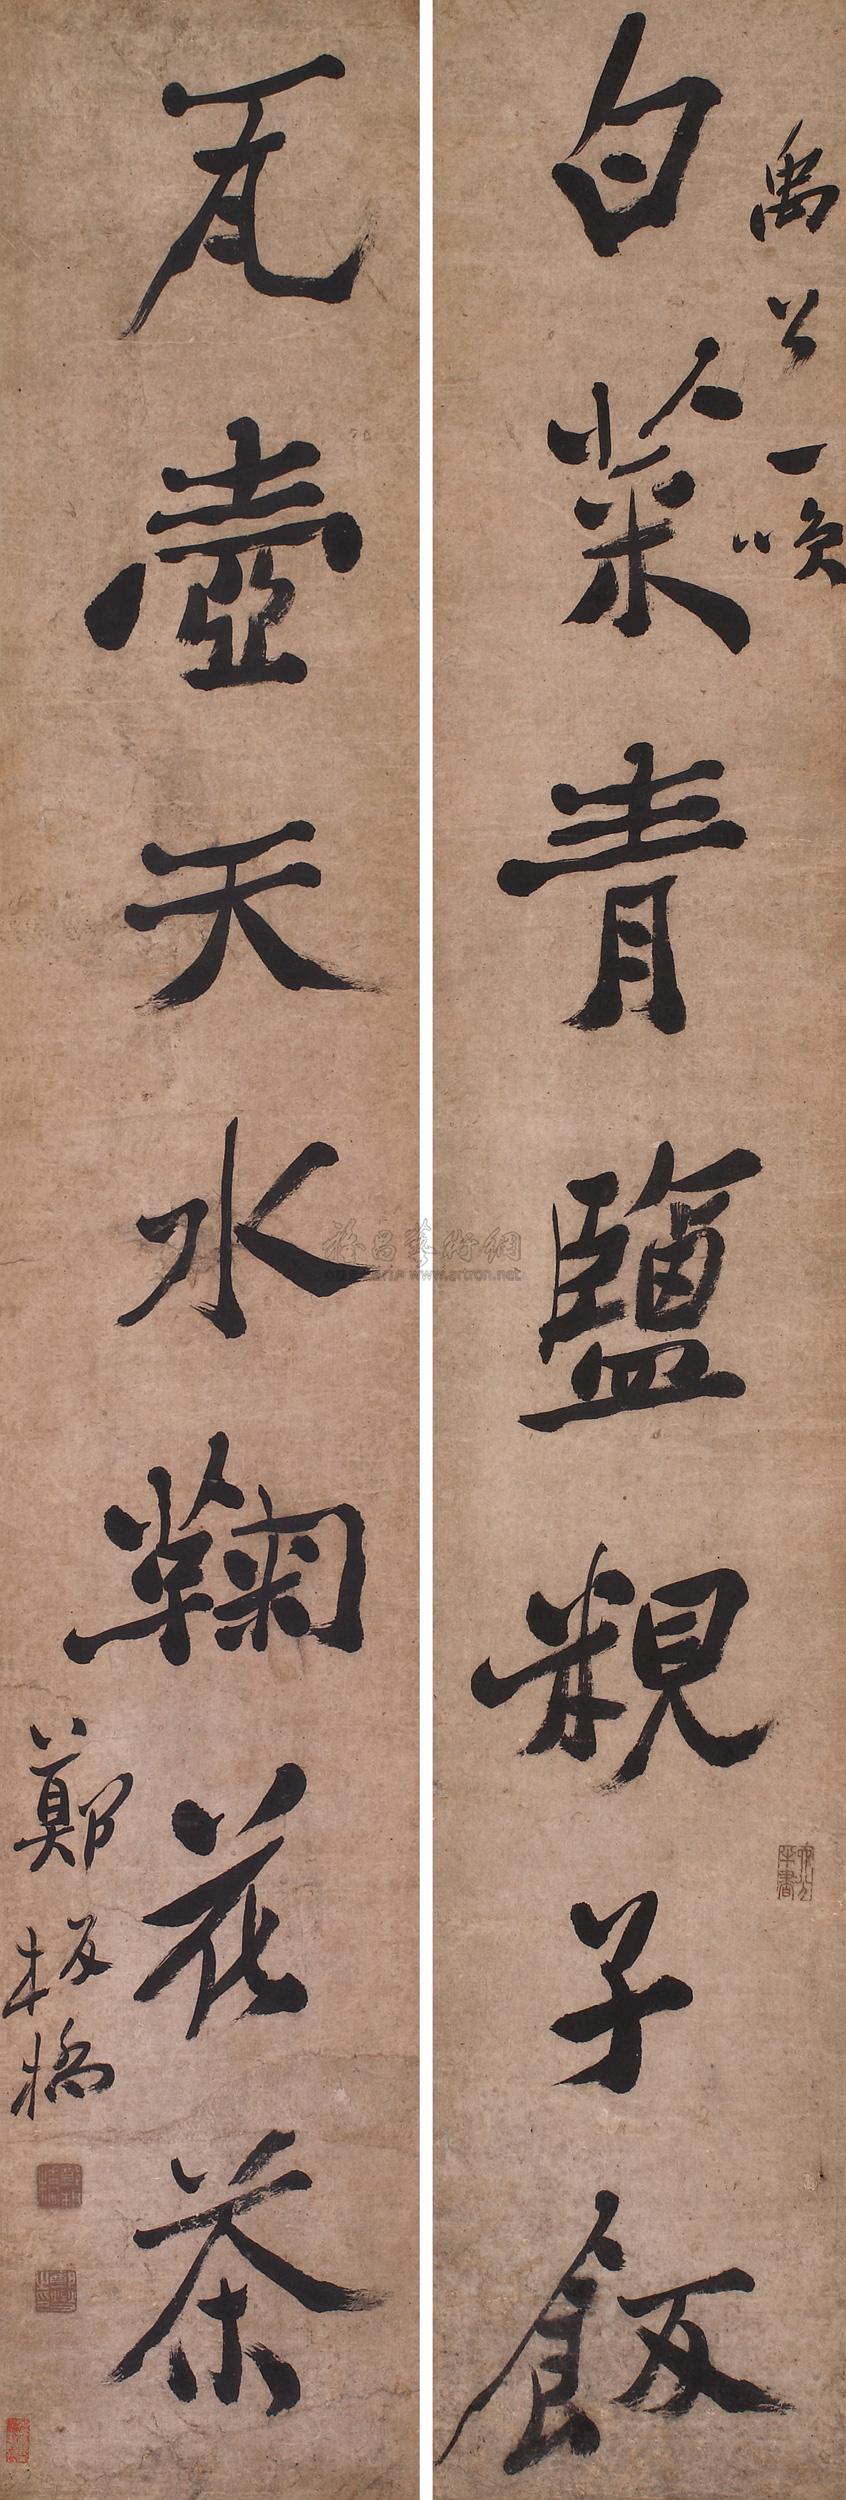 禹公一噱
白菜青鹽粯子飯
瓦壺天水鞠花茶
鄭板橋
雅昌藝術網
www.artron.net